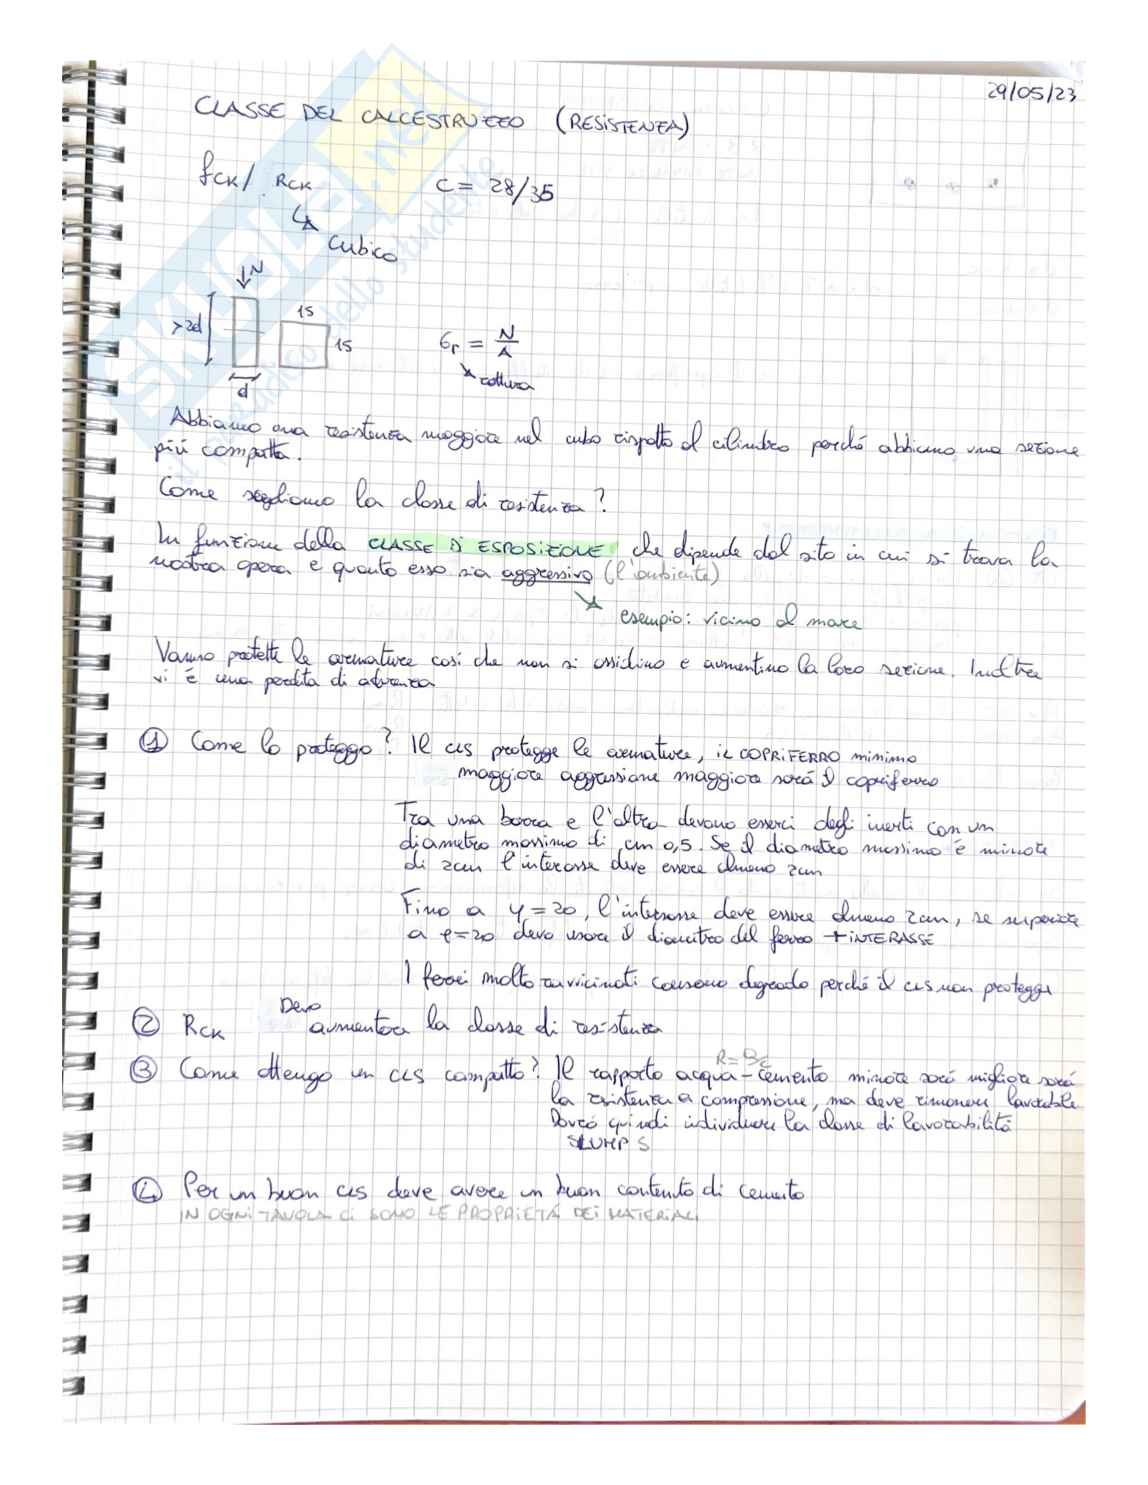 29/05/23
CLASSE DEL CALCESTRUZZO (RESISTENZA)
fck/ Rck C = 28/35
↳ Cubico
↓N
>2d 15 15
d
σr = N/A
↘ rottura
Abbiamo una resistenza maggiore nel cubo rispetto al cilindro perché abbiamo una sezione
più compatta.
Come scegliamo la classe di resistenza?
In funzione della CLASSE DI ESPOSIZIONE che dipende dal sito in cui si trova la
nostra opera e quanto esso sia aggressivo (l'ambiente)
↘ esempio: vicino al mare
Vanno protette le armature così che non si ossidino e aumentino la loro sezione. Inoltre
vi è una perdita di aderenza
① Come lo proteggo? Il cls protegge le armature, il COPRIFERRO minimo
maggiore aggressione maggiore sarà il copriferro
Tra una barra e l'altra devono esserci degli inerti con un
diametro massimo di cm 0,5. Se il diametro massimo è minore
di 2cm l'interasse deve essere almeno 2cm
Fino a φ=20, l'interasse deve essere almeno 2cm, se superiore
a φ=20 devo usare il diametro del ferro + INTERASSE
I ferri molto ravvicinati causano degrado perché il cls non protegge
② Rck Devo aumentare la classe di resistenza
③ Come ottengo un cls compatto? Il rapporto acqua-cemento minore sarà migliore sarà
la resistenza a compressione, ma deve rimanere lavorabile
Dovrò quindi individuare la classe di lavorabilità
SLUMP S
④ Per un buon cls deve avere un buon contenuto di cemento
IN OGNI TAVOLA CI SONO LE PROPRIETÀ DEI MATERIALI
SKUOLA.net
il paradiso dello studente